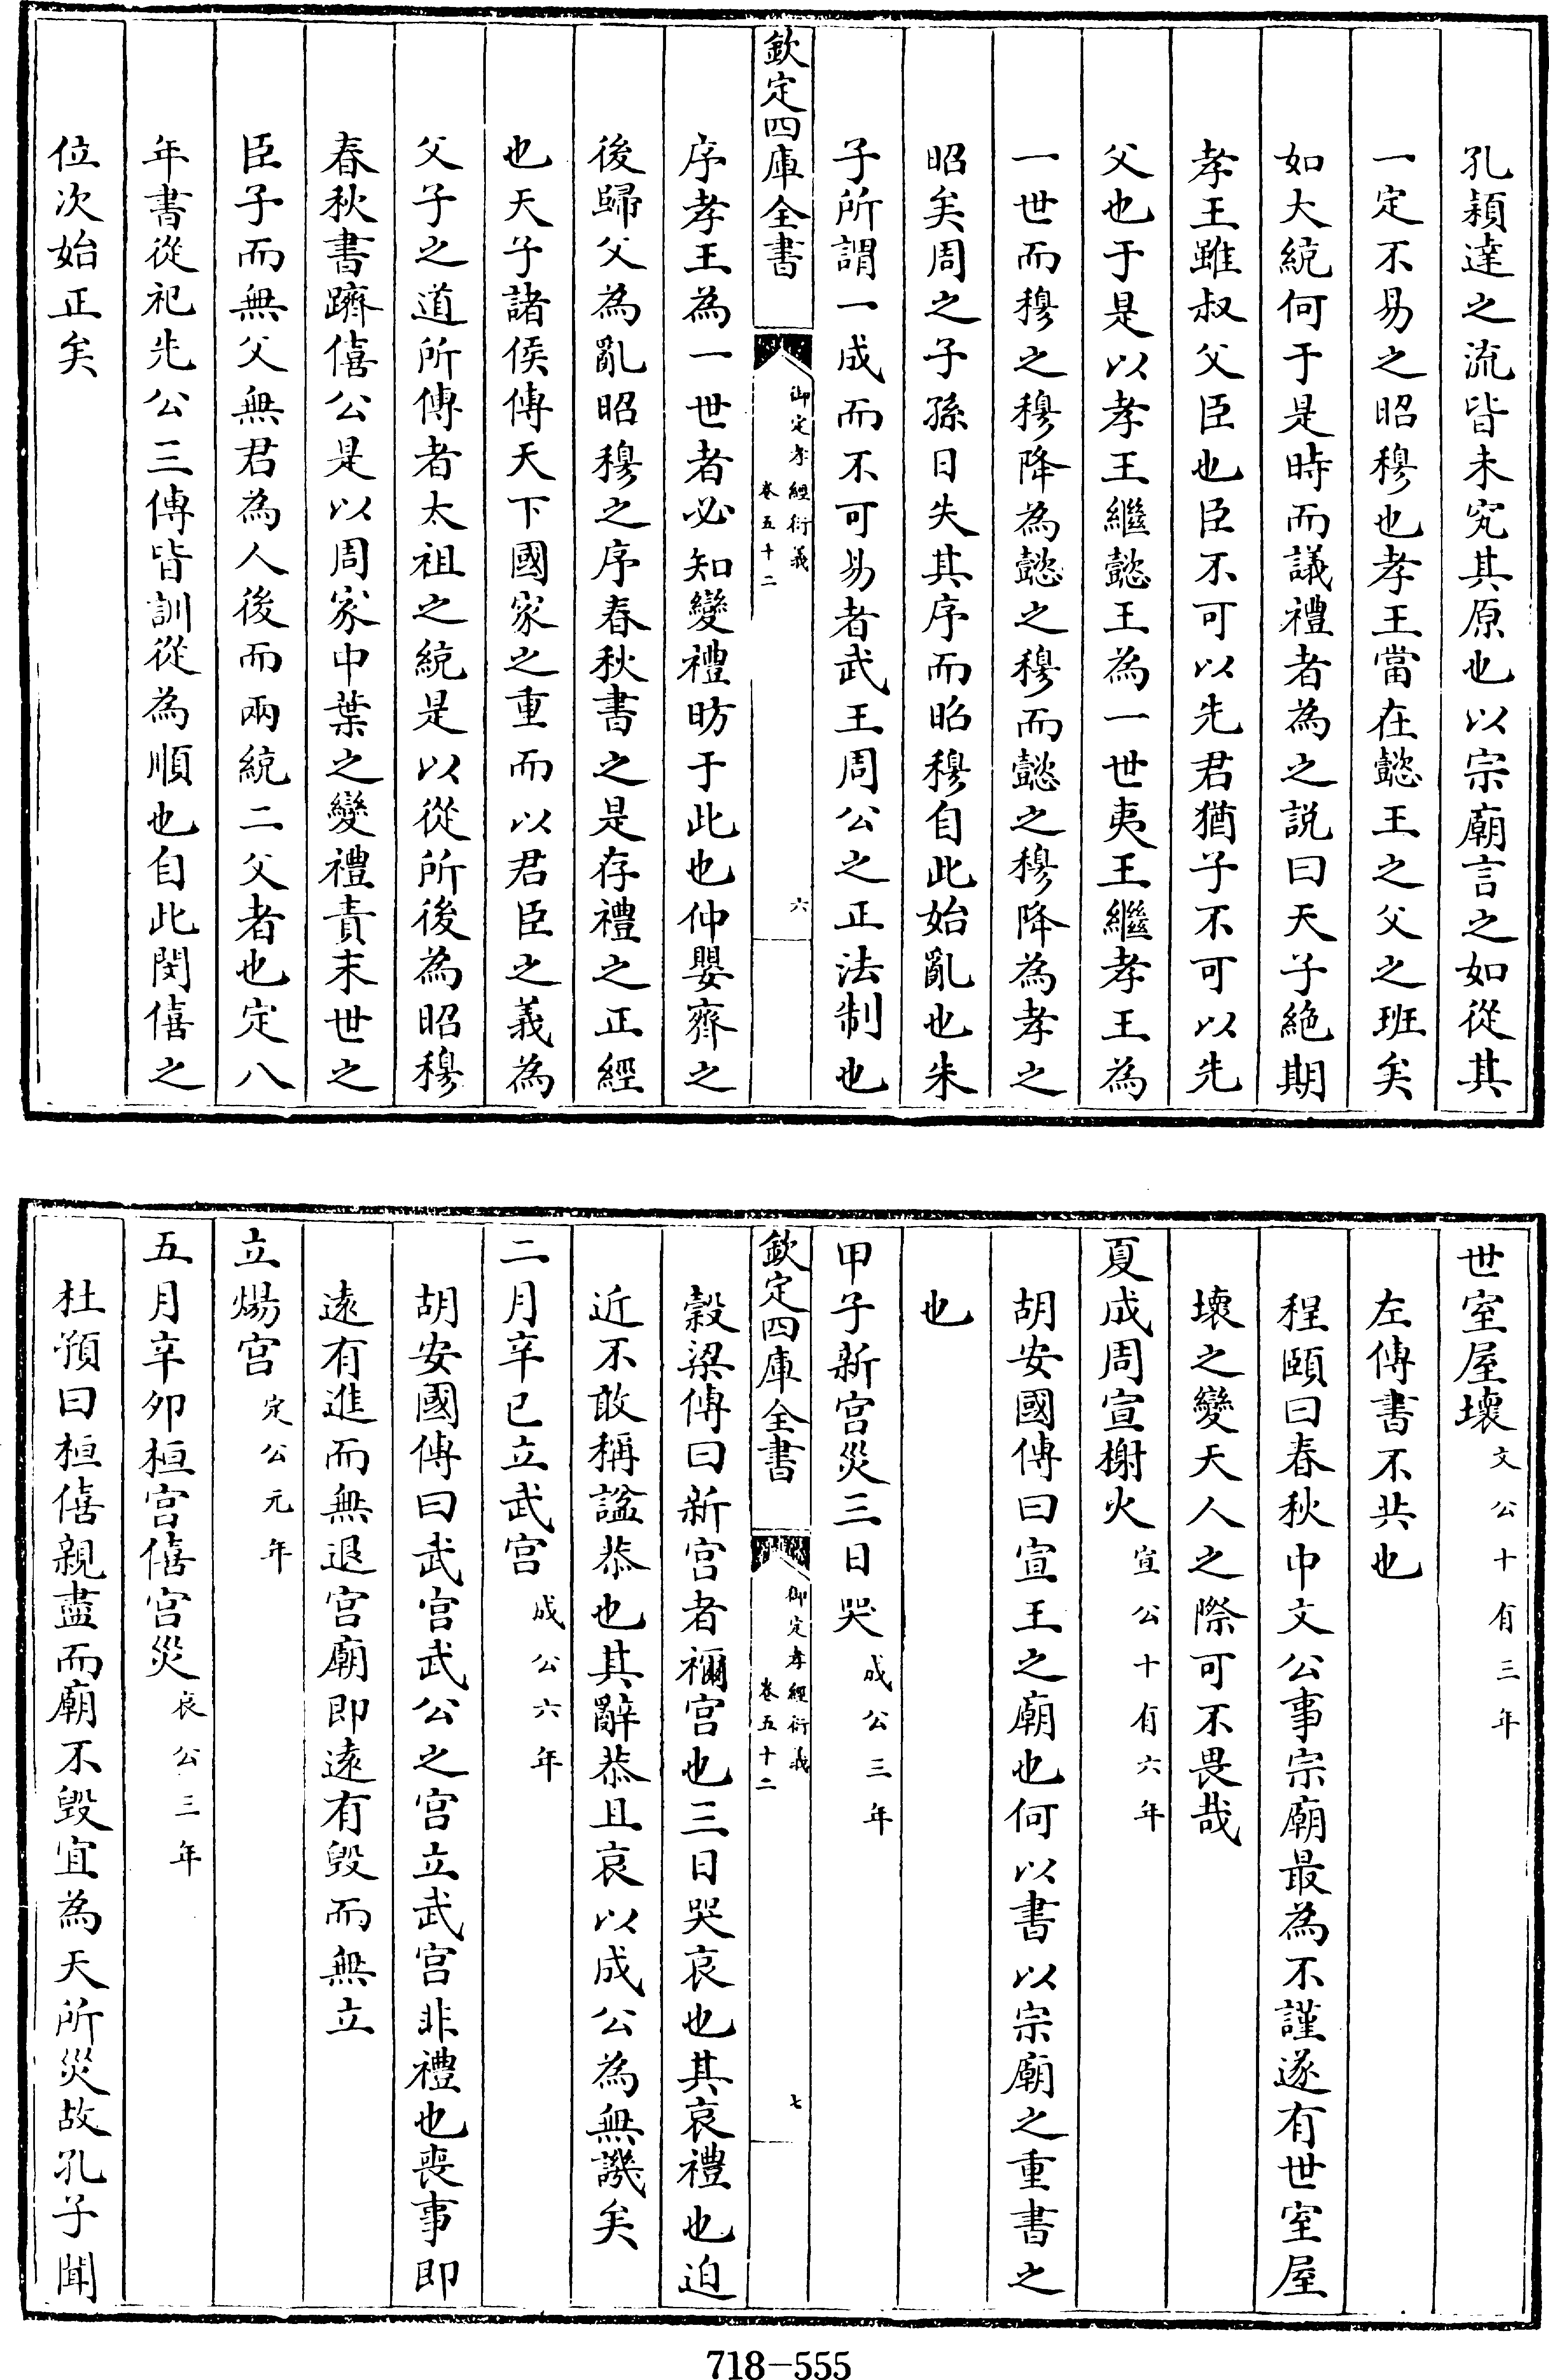 孔穎達之流皆未究其原也以宗廟言之如從其
一定不易之昭穆也孝王當在懿王之父之班矣
如大統何于是時而議禮者為之説曰天子絶期
孝王雖叔父臣也臣不可以先君猶子不可以先
父也于是以孝王繼懿王為一世夷王繼孝王為
一世而穆之穆降為懿之穆而懿之穆降為孝之
昭矣周之子孫日失其序而昭穆自此始亂也朱
子所謂一成而不可易者武王周公之正法制也
欽定四庫全書
御定孝經衍義
卷五十二
六
序孝王為一世者必知變禮昉于此也仲嬰齊之
後歸父為亂昭穆之序春秋書之是存禮之正經
也天子諸侯傳天下國家之重而以君臣之義為
父子之道所傳者太祖之統是以從所後為昭穆
春秋書躋僖公是以周家中葉之變禮責末世之
臣子而無父無君為人後而兩統二父者也定八
年書從祀先公三傳皆訓從為順也自此閔僖之
位次始正矣
世室屋壞文公十有三年
左傳書不共也
程頤曰春秋中文公事宗廟最為不謹遂有世室屋
壞之變天人之際可不畏哉
夏成周宣榭火宣公十有六年
胡安國傳曰宣王之廟也何以書以宗廟之重書之
也
甲子新宫災三日哭成公三年
欽定四庫全書
御定孝經衍義
卷五十二
七
穀梁傳曰新宫者禰宫也三日哭哀也其哀禮也迫
近不敢稱諡恭也其辭恭且哀以成公為無譏矣
二月辛巳立武宫成公六年
胡安國傳曰武宫武公之宫立武宫非禮也喪事即
遠有進而無退宫廟即遠有毁而無立
立煬宫定公元年
五月辛卯桓宫僖宫災哀公三年
杜預曰桓僖親盡而廟不毁宜為天所災故孔子聞
718-555